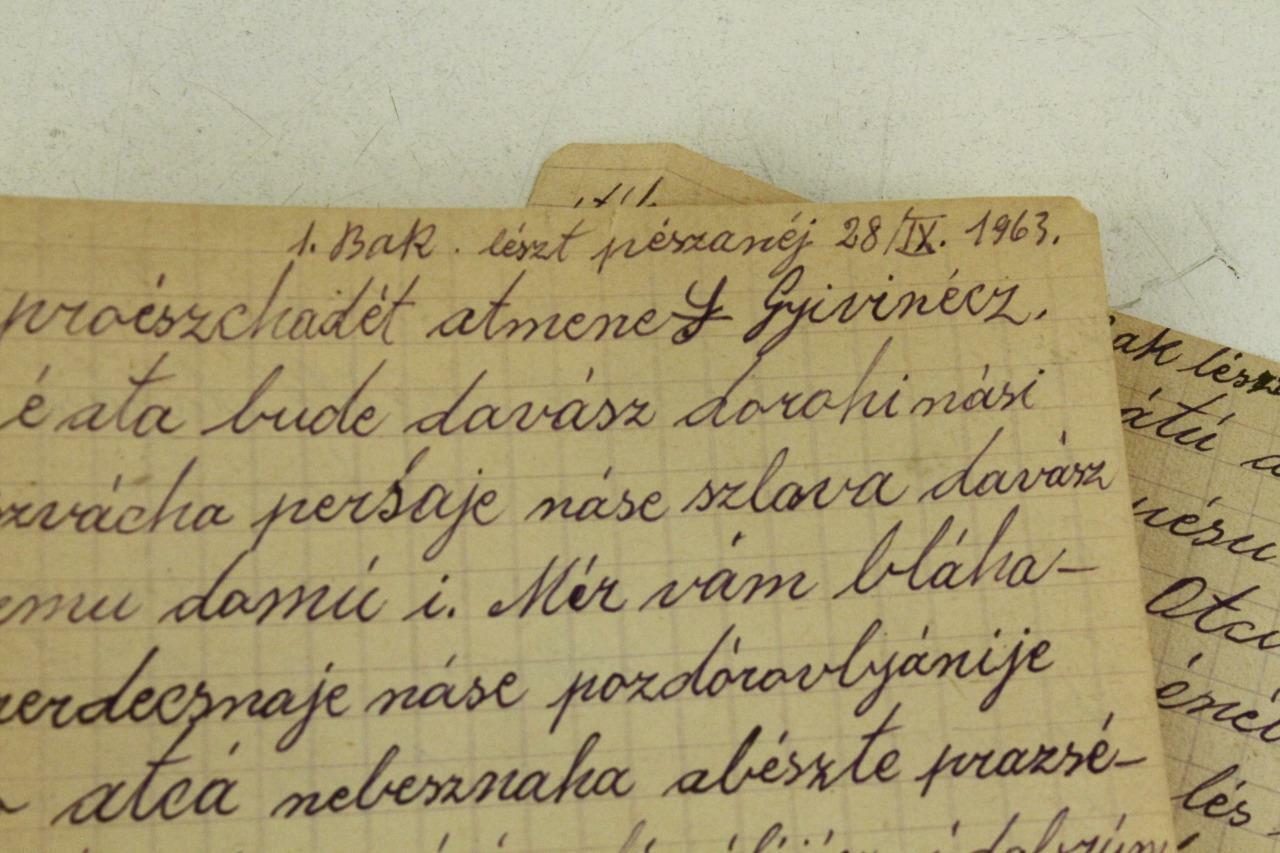 1. Bak. lészt pészanéj 28/IX. 1963.
proészchadét atmene Gyivinécz.
é ata bude davász dorohi nási
szvácha peršaje náse szlova davász
emu domú i. Mér vám bláha-
zerdecsnaje náse pozdórovlyánije
atcá nebesznaha abészte prazsé-
ak lész
átú
nésu
Otca
énéi
lés